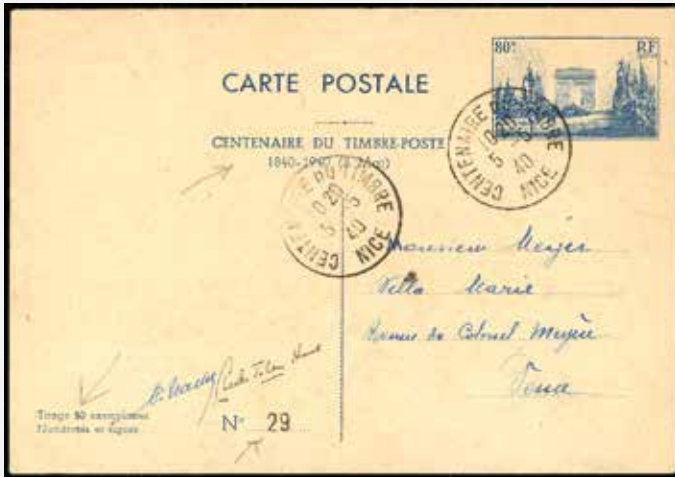 80c RF
CARTE POSTALE
CENTENAIRE DU TIMBRE-POSTE
1840-1940
CENTENAIRE DU TIMBRE
0 20
5 -5
40
NICE
CENTENAIRE DU TIMBRE
0 20
5 -5
40
NICE
Monsieur Meyer
Villa Marie
de Colonel
Tirage 50 exemplaires
Numérotés et signés
N° 29